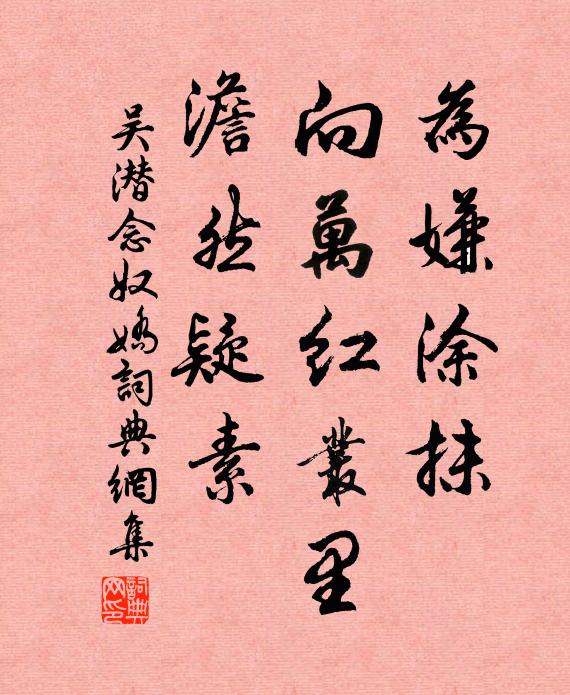 為嫌涂抹
向萬紅叢里
澹然凝素
吴潜念奴嬌詞典網集
詞典网印